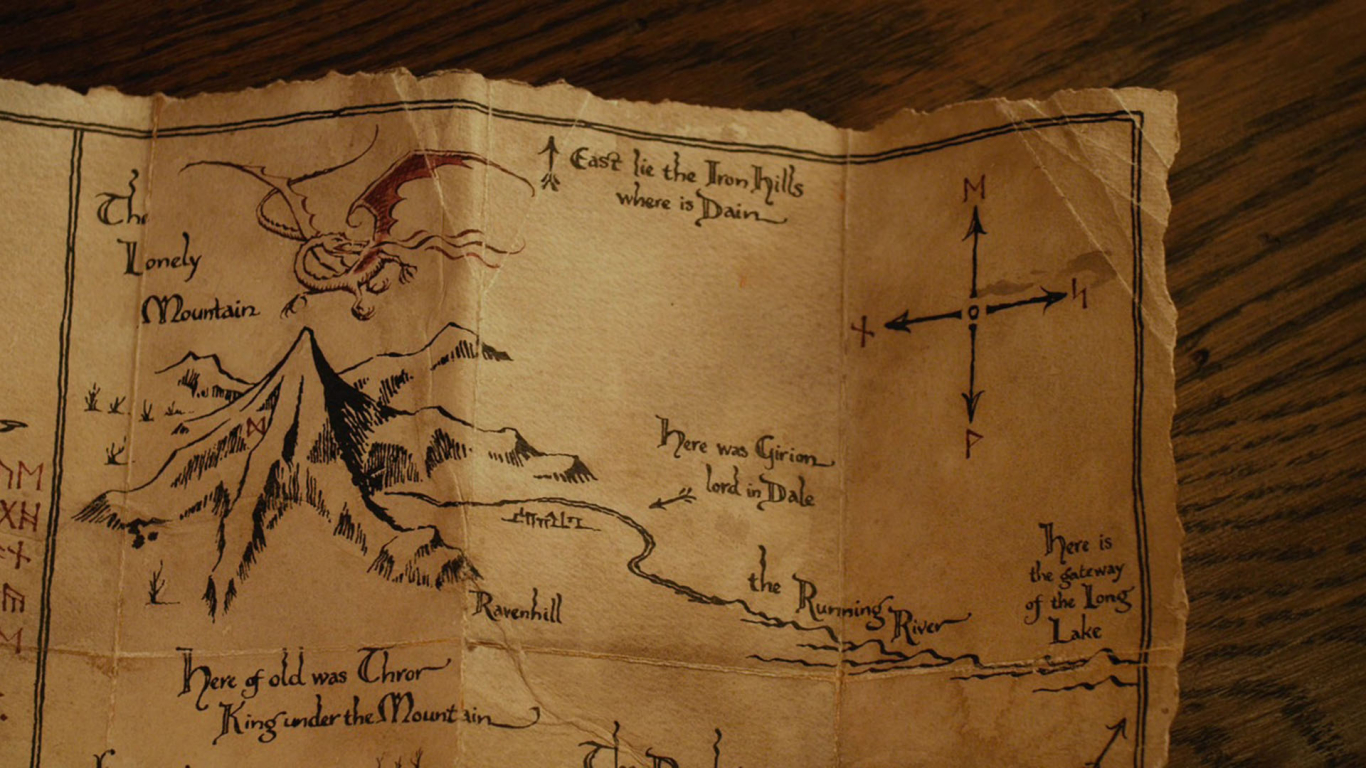 East lie the Iron Hills
where is Dain
The
Lonely
Mountain
ᛖ
ᛋ
ᚾ
ᚹ
ᛞ
Here was Girion
lord in Dale
the Running
River
Here is
the gateway
of the Long
Lake
Ravenhill
Here of old was Thror
King under the Mountain